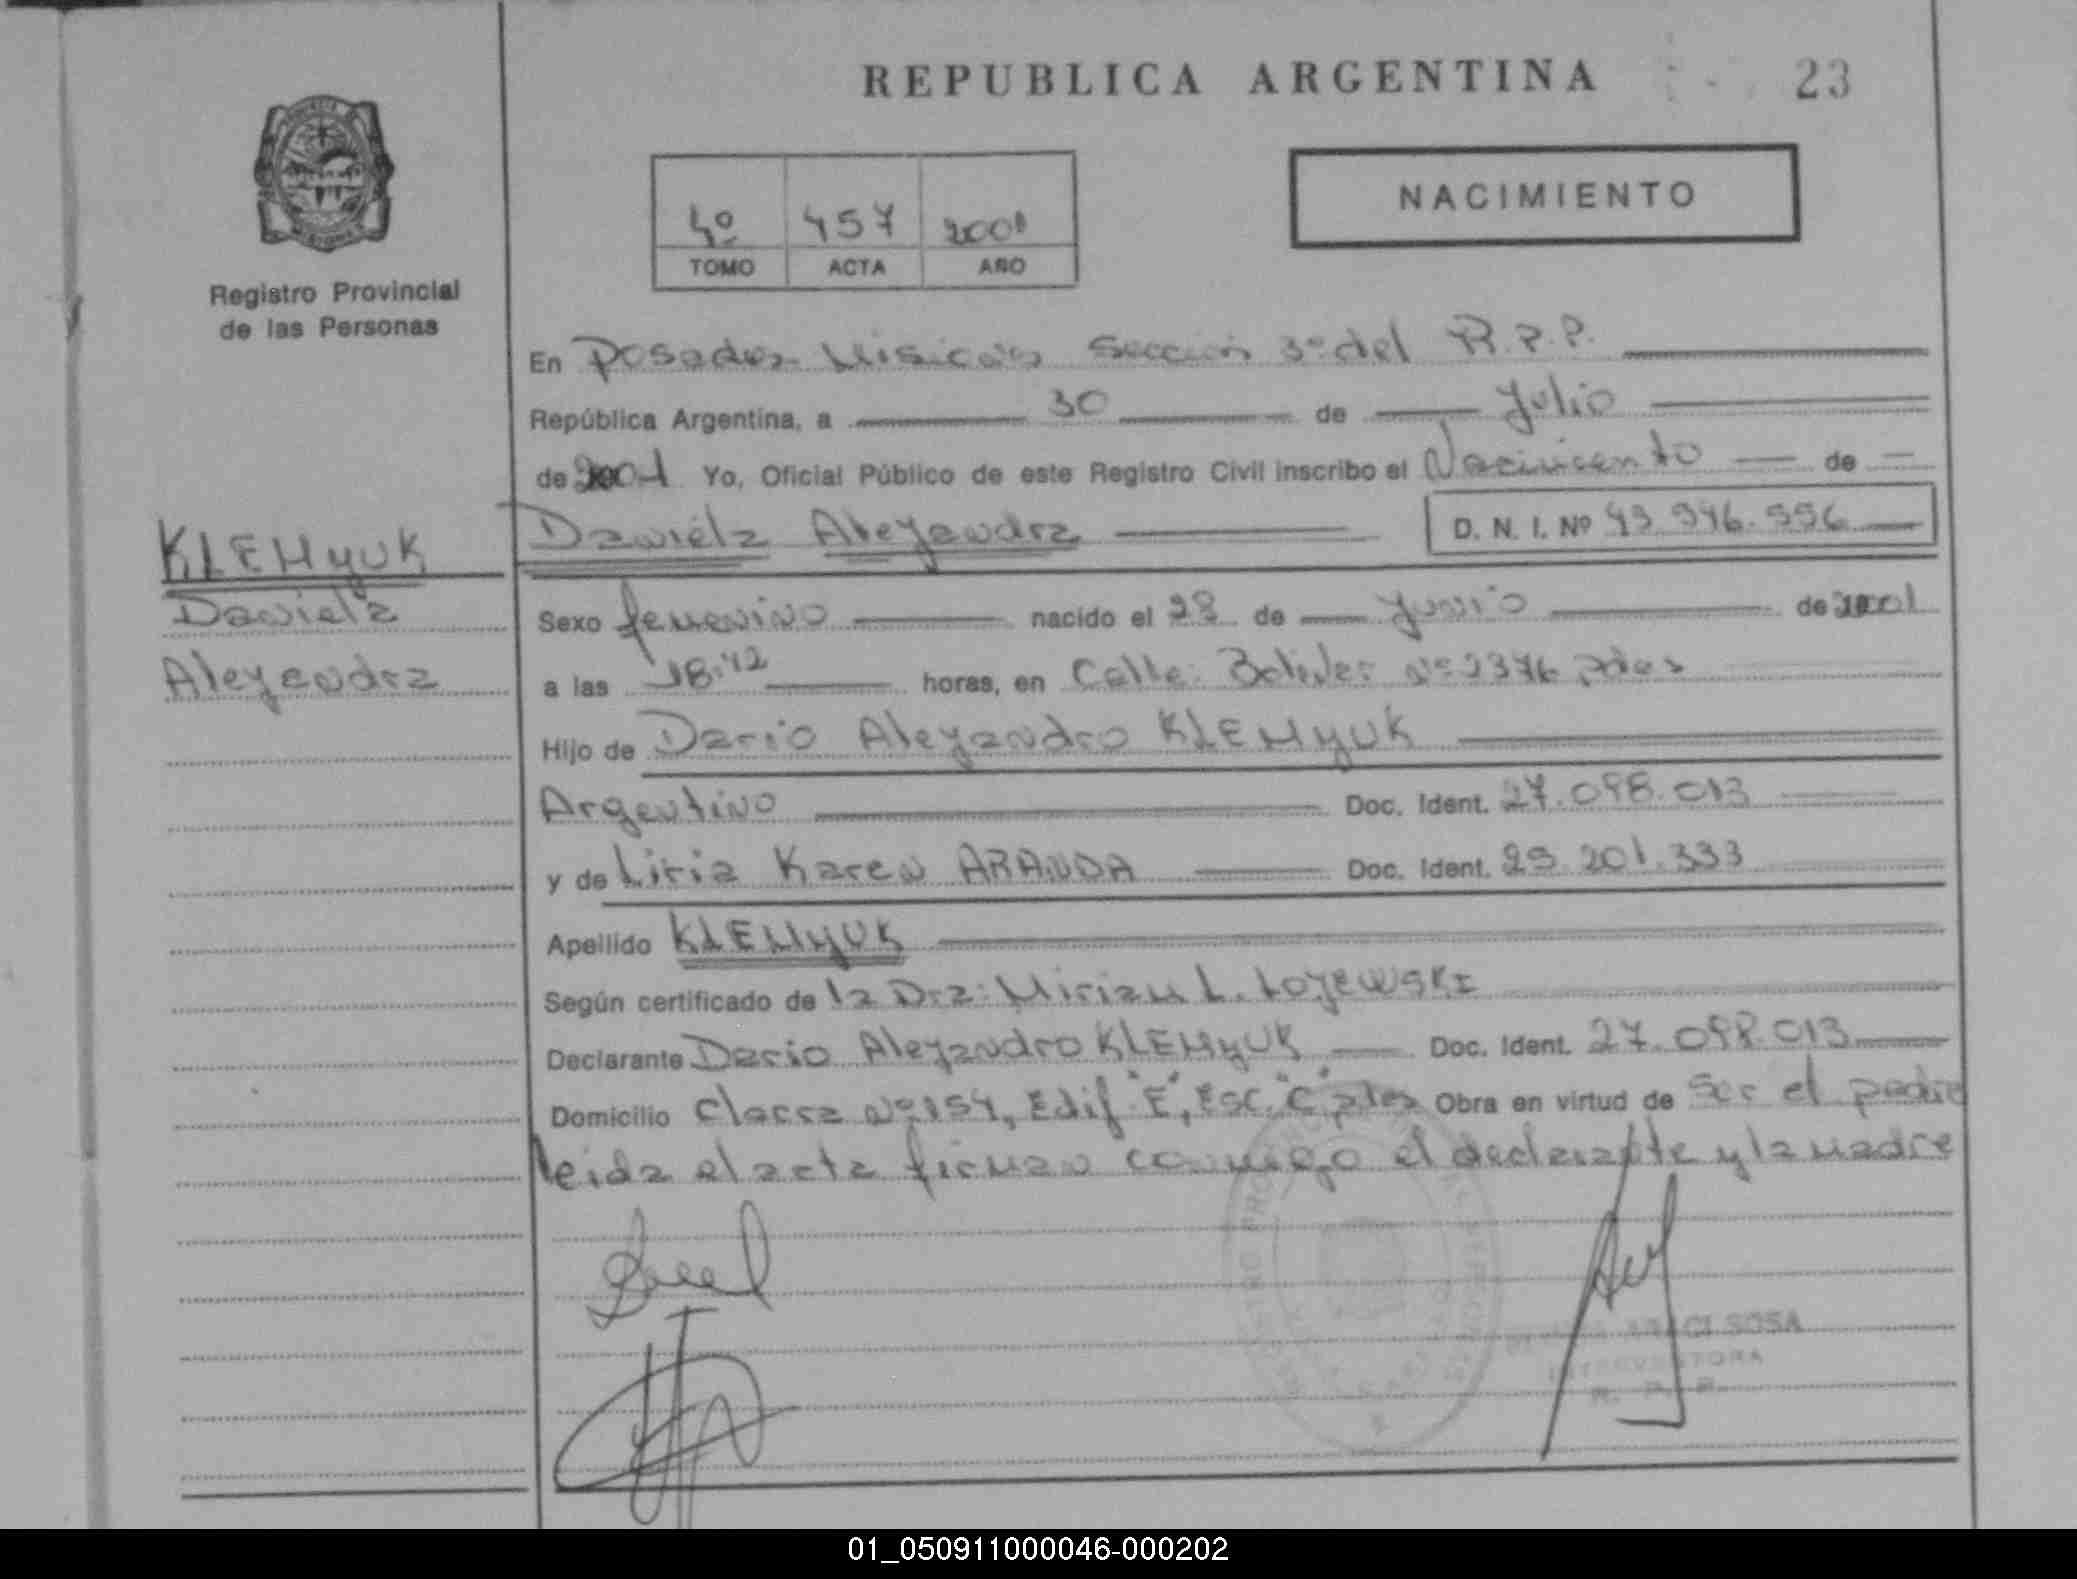 REPUBLICA ARGENTINA 23
NACIMIENTO
4º 457 2001
TOMO ACTA AÑO
Registro Provincial
de las Personas
En Posadas Misiones Sección 3º del R.P.P.
República Argentina, a 30 de Julio
de 2001 Yo, Oficial Público de este Registro Civil inscribo el Nacimiento de
Daniela Alejandra D. N. I. Nº
KLEMyUK
Daniela
Alejandra
Sexo femenino nacido el de Junio de 2001
a las 18:42 horas, en Calle: Bolivar Nº
Hijo de Dario Alejandro KLEMyUK
Argentino Doc. Ident. 27.098.013
y de Liria Karen ARANDA Doc. Ident. 29.201.333
Apellido KLEMyUK
Según certificado de la Dra: Miriam L. Lojewski
Declarante Dario Alejandro KLEMyUK Doc. Ident. 27.098.013
Domicilio Nº 154, Edif. "E", Esc. "C", Pdas Obra en virtud de ser el padre
leida el acta firman conmigo el declarante y la madre
ARACI SOSA
INTERVENTORA
R. P. P.
01_050911000046-000202